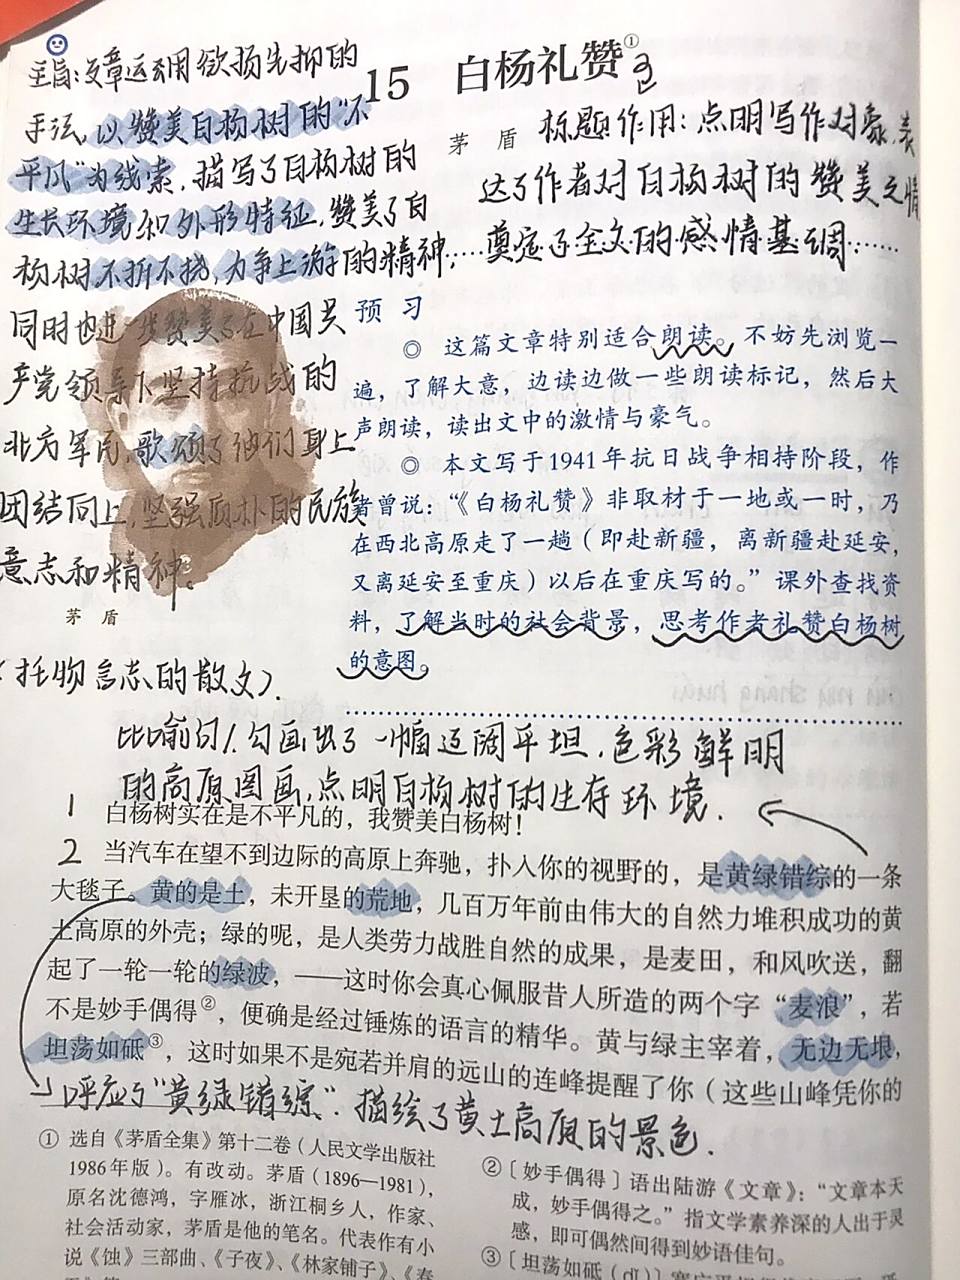 主旨：文章运用欲扬先抑的
手法，以赞美白杨树的“不
平凡”为线索，描写了白杨树的
生长环境和外形特征，赞美了白
杨树不折不挠，力争上游的精神，
同时也进一步赞美了在中国共
产党领导下坚持抗战的
北方军民，歌颂了他们身上
团结向上，坚强质朴的民族
意志和精神。
茅 盾
（托物言志的散文）.
15 白杨礼赞①
茅 盾
标题作用：点明写作对象，表
达了作者对白杨树的赞美之情
奠定了全文的感情基调.
预 习
◎ 这篇文章特别适合朗读。不妨先浏览一
遍，了解大意，边读边做一些朗读标记，然后大
声朗读，读出文中的激情与豪气。
◎ 本文写于1941年抗日战争相持阶段，作
者曾说：“《白杨礼赞》非取材于一地或一时，乃
在西北高原走了一趟（即赴新疆，离新疆赴延安，
又离延安至重庆）以后在重庆写的。”课外查找资
料，了解当时的社会背景，思考作者礼赞白杨树
的意图。
比喻句！勾画出了一幅辽阔平坦，色彩鲜明
的高原图画，点明白杨树的生存环境.
1 白杨树实在是不平凡的，我赞美白杨树！
2 当汽车在望不到边际的高原上奔驰，扑入你的视野的，是黄绿错综的一条
大毯子。黄的是土，未开垦的荒地，几百万年前由伟大的自然力堆积成功的黄
土高原的外壳；绿的呢，是人类劳力战胜自然的成果，是麦田，和风吹送，翻
起了一轮一轮的绿波，——这时你会真心佩服昔人所造的两个字“麦浪”，若
不是妙手偶得②，便确是经过锤炼的语言的精华。黄与绿主宰着，无边无垠，
坦荡如砥③，这时如果不是宛若并肩的远山的连峰提醒了你（这些山峰凭你的
呼应了“黄绿错综”. 描绘了黄土高原的景色.
① 选自《茅盾全集》第十二卷（人民文学出版社
1986年版）。有改动。茅盾（1896—1981），
原名沈德鸿，字雁冰，浙江桐乡人，作家、
社会活动家，茅盾是他的笔名。代表作有小
说《蚀》三部曲、《子夜》、《林家铺子》、《春
②〔妙手偶得〕语出陆游《文章》：“文章本天
成，妙手偶得之。”指文学素养深的人出于灵
感，即可偶然间得到妙语佳句。
③〔坦荡如砥（dǐ）〕